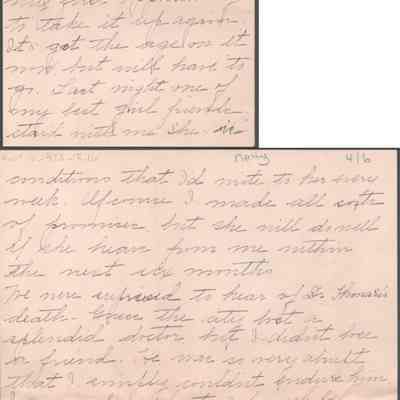 to take it up again.
It's got the age on it
now but will have to
go. Last night one of
my best girl friends
staid with me she
conditions that I'd write to her every
week. Of course I made all sorts
of promises but she will do well
if she hears from me within
the next six months
We were surprised to hear of Dr. Thomas's
death. Guess the city lost a
splendid doctor but I didn't lose
a friend. He was so very abrupt
that I simply couldn't endure him